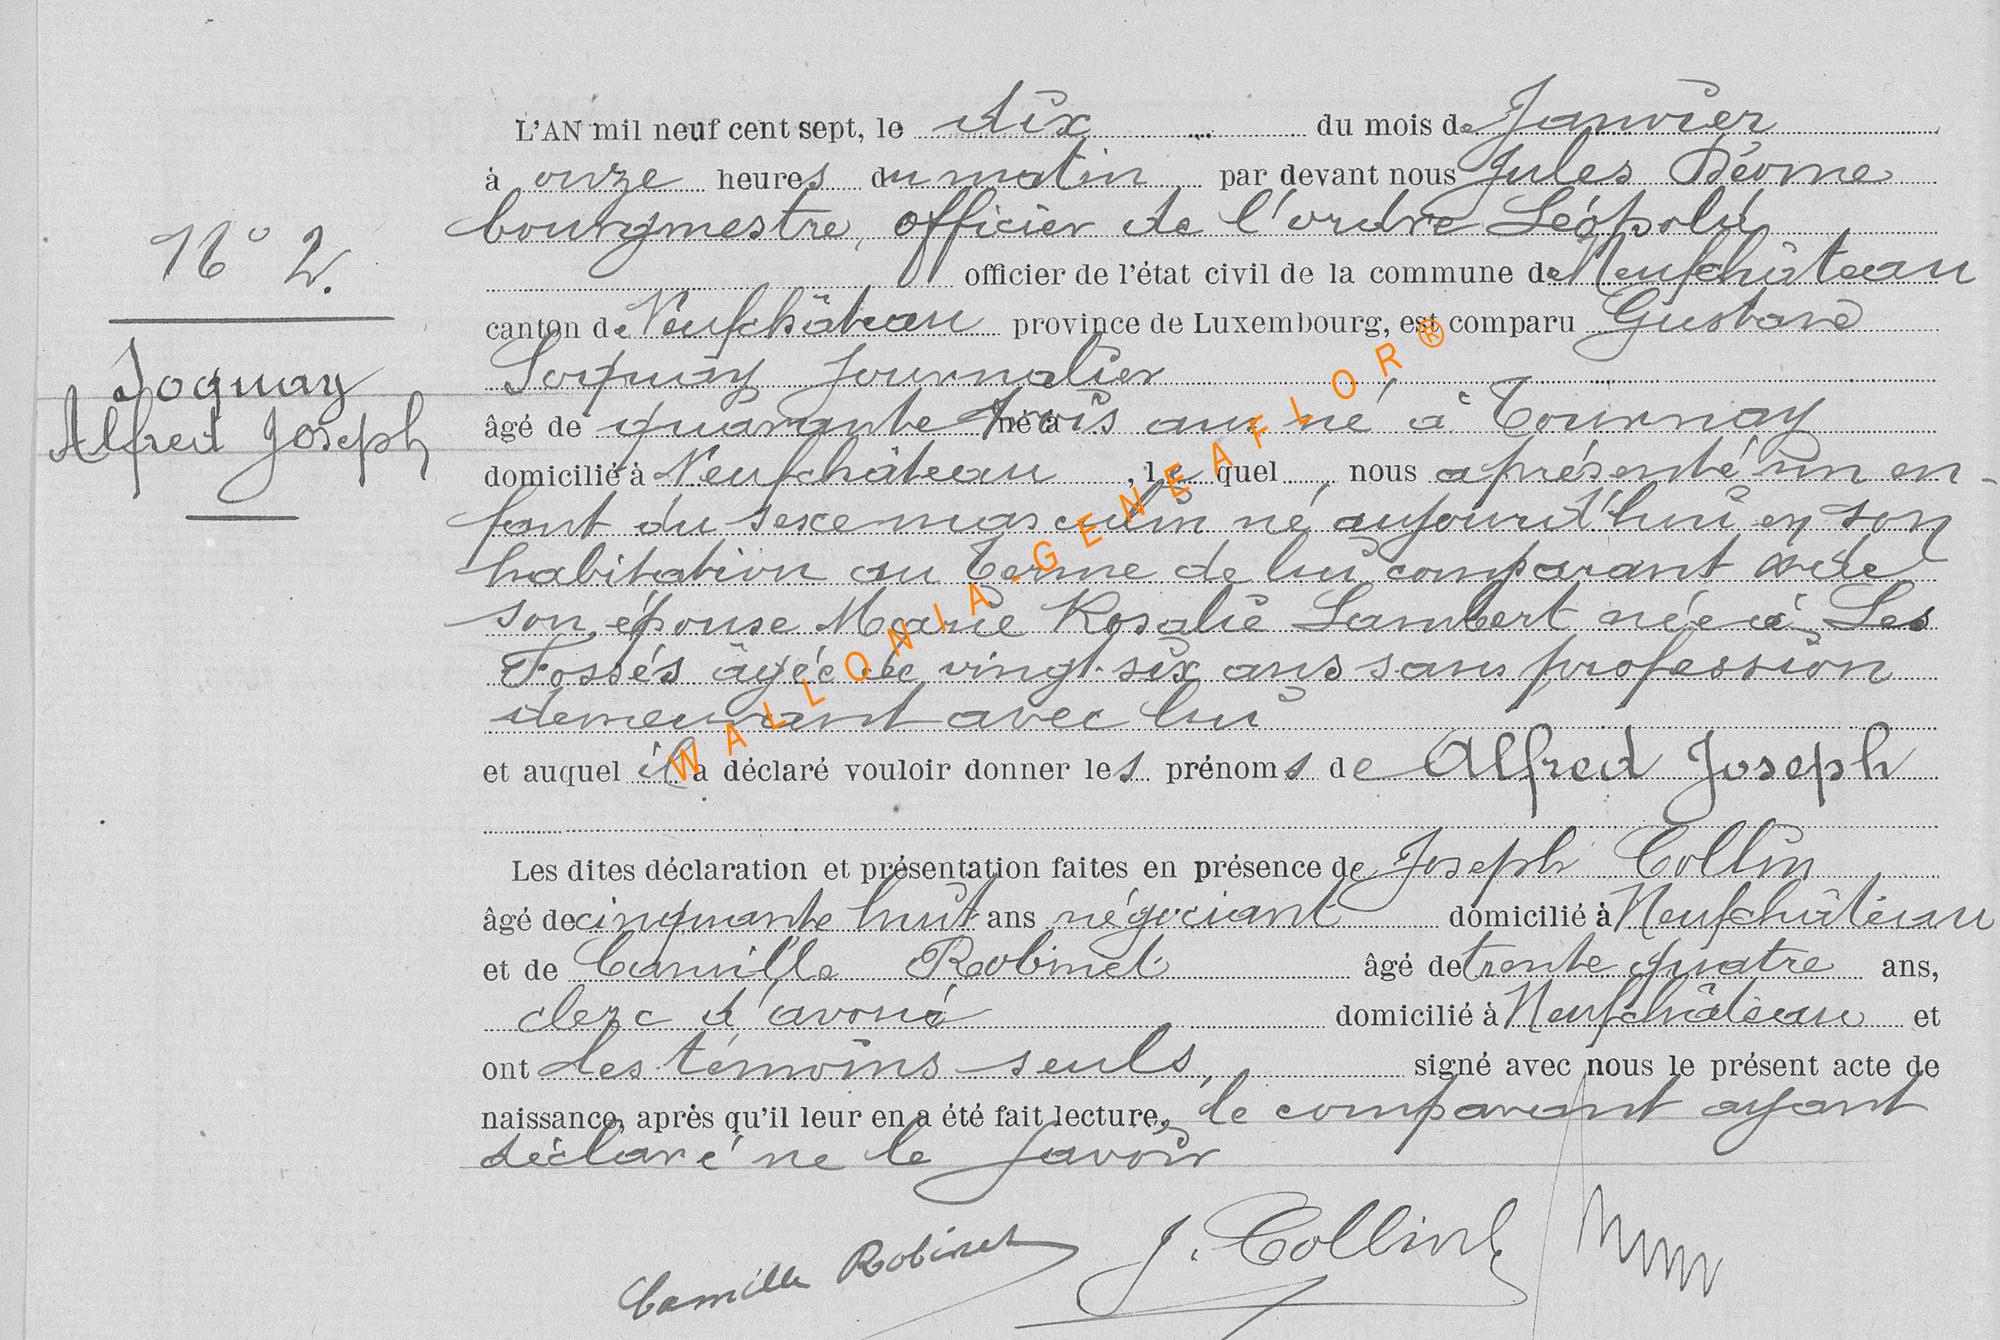 L'AN mil neuf cent sept, le dix du mois de Janvier
à onze heures du matin par devant nous Jules
bourgmestre, officier de l'ordre Léopold
officier de l'état civil de la commune de Neufchâteau
canton de Neufchâteau province de Luxembourg, est comparu Gustave
Soquay journalier
âgé de quarante trois ans né à Tournay
domicilié à Neufchâteau, le quel, nous a présenté un en-
fant du sexe masculin né aujourd'hui en son
habitation au Terme de lui comparant et de
son épouse Marie Rosalie Lambert née à Les
Fossés âgée de vingt-six ans sans profession
demeurant avec lui
et auquel il a déclaré vouloir donner les prénoms de Alfred Joseph
Les dites déclaration et présentation faites en présence de Joseph Collin
âgé de cinquante huit ans négociant domicilié à Neufchâteau
et de Camille Robinet âgé de trente quatre ans,
clerc d'avoué domicilié à Neufchâteau et
ont les témoins seuls, signé avec nous le présent acte de
naissance, après qu'il leur en a été fait lecture, le comparant ayant
déclaré ne le savoir
Camille Robinet J. Collin
N° 2.
Soquay
Alfred Joseph
WALLONIA-GENEAFLOR®